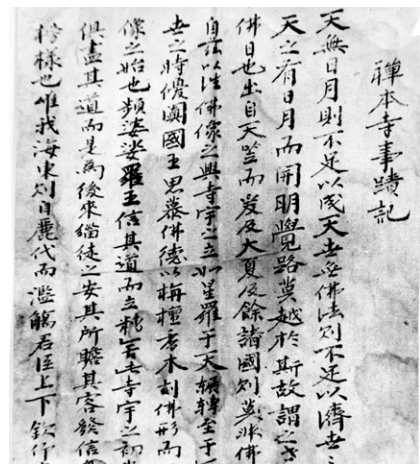 禪本寺事蹟記
天無日月則不足以成天世無佛法則不足以濟世
天之有日月而開明覺路莫越於斯故謂之
佛日也出自天竺而爰及大夏及餘諸國則莫非佛
自法以法佛像之興寺宇之立如星羅于天輾轉至于
世之時優闐國王思慕佛德以栴檀香木刻佛形而
像之始也頻婆娑羅王信其道而立精舍寺宇之初
俱盡其道而是爲後來緇徒之安其所瞻其容發信
樣也唯我海東則自麗代而濫觴君臣上下欽